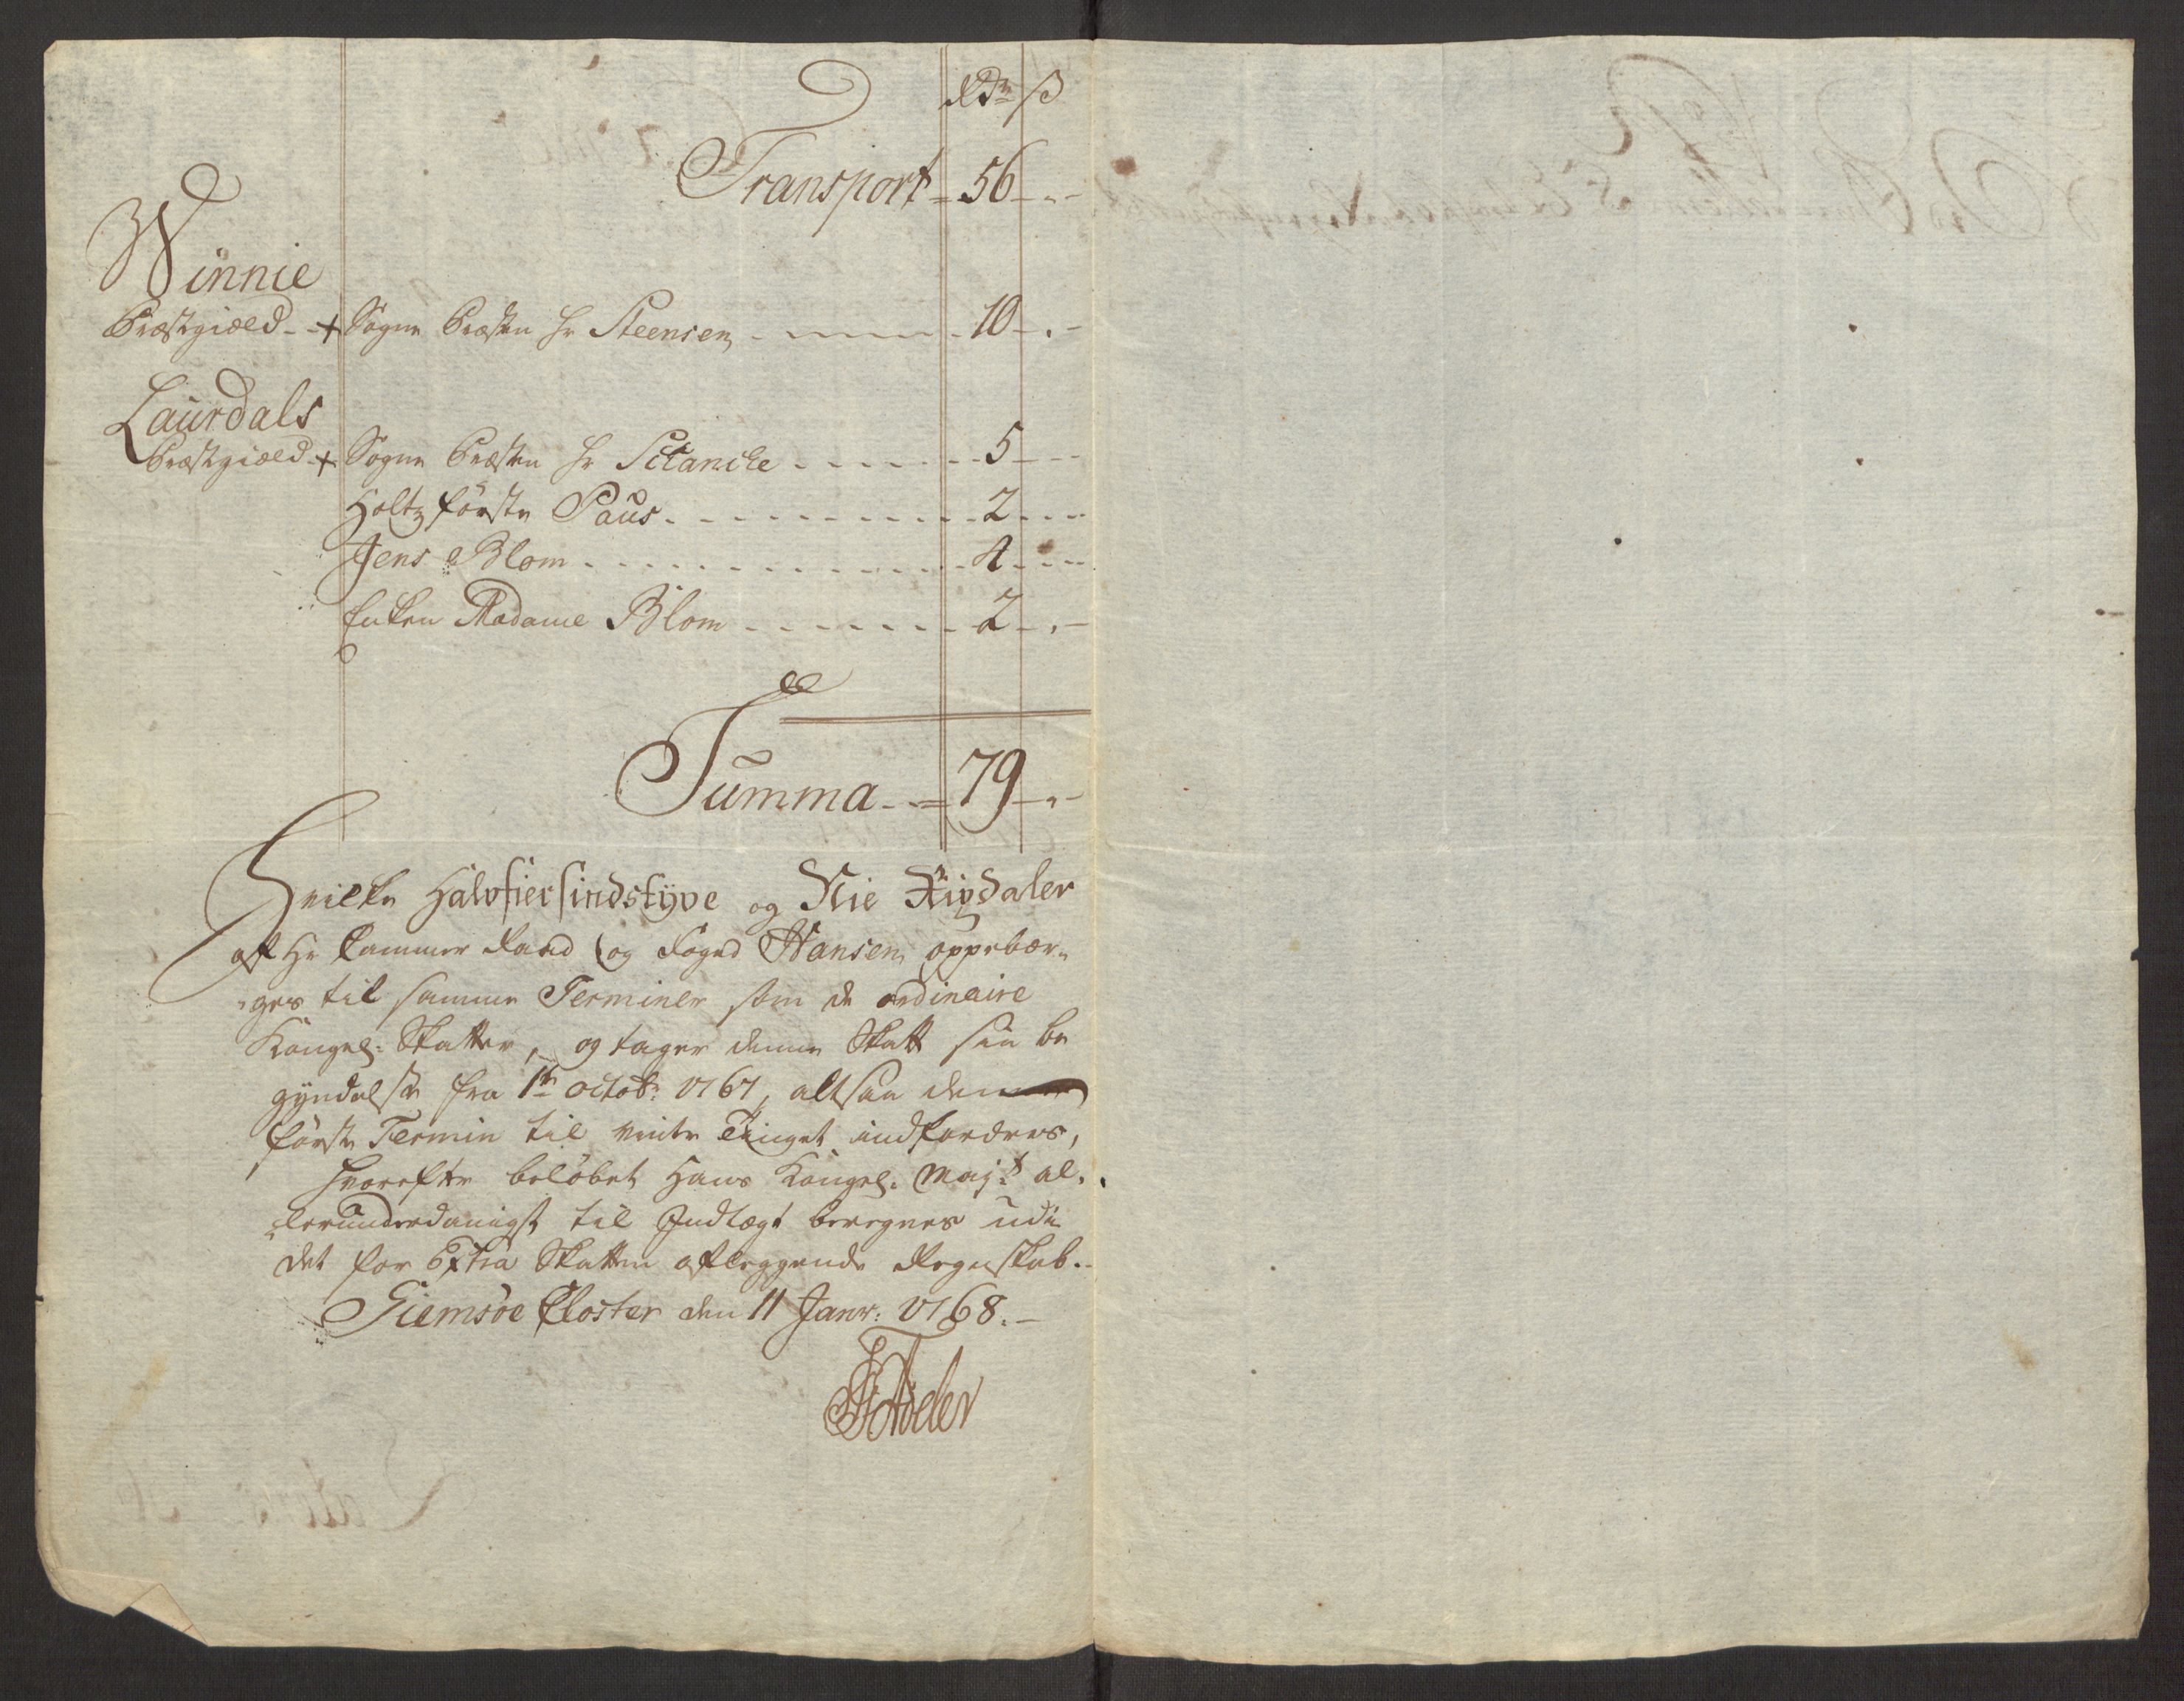 Rdr ß
Transport 56 - -
Winnie
Præstegield - + Sogne Præsten Hr Steensen - 10 - -
Laurdals
Præstegield + Sogne Præsten Hr Stancke - - - - 5 - -
Holtzförster Paus - - - - 2 - -
Jens Blom - - - - 4 - -
Enken Madame Blom - - - - 2 - -
Summa - - 79 - -
Hvilke Halvfiersindstÿve og Nie Rixdaler
af Hr Cammer Raad og Foged Hansen oppebær-
ges til samme Terminer som de ordinaire
Kongel: Skatter, og tager denne Skatt sin be
gyndelse fra 1te octobr: 1767, altsaa den
förste Termin til vinter Tinget indfordres,
hvorefter belöbet Hans Kongel. Majt al-
lerunderdanigst til Indtægt beregnes udi
det for Extra Skatten aflæggende Regnskab.
Giemsöe Closter den 11 Janr: 1768. -
FAdeler